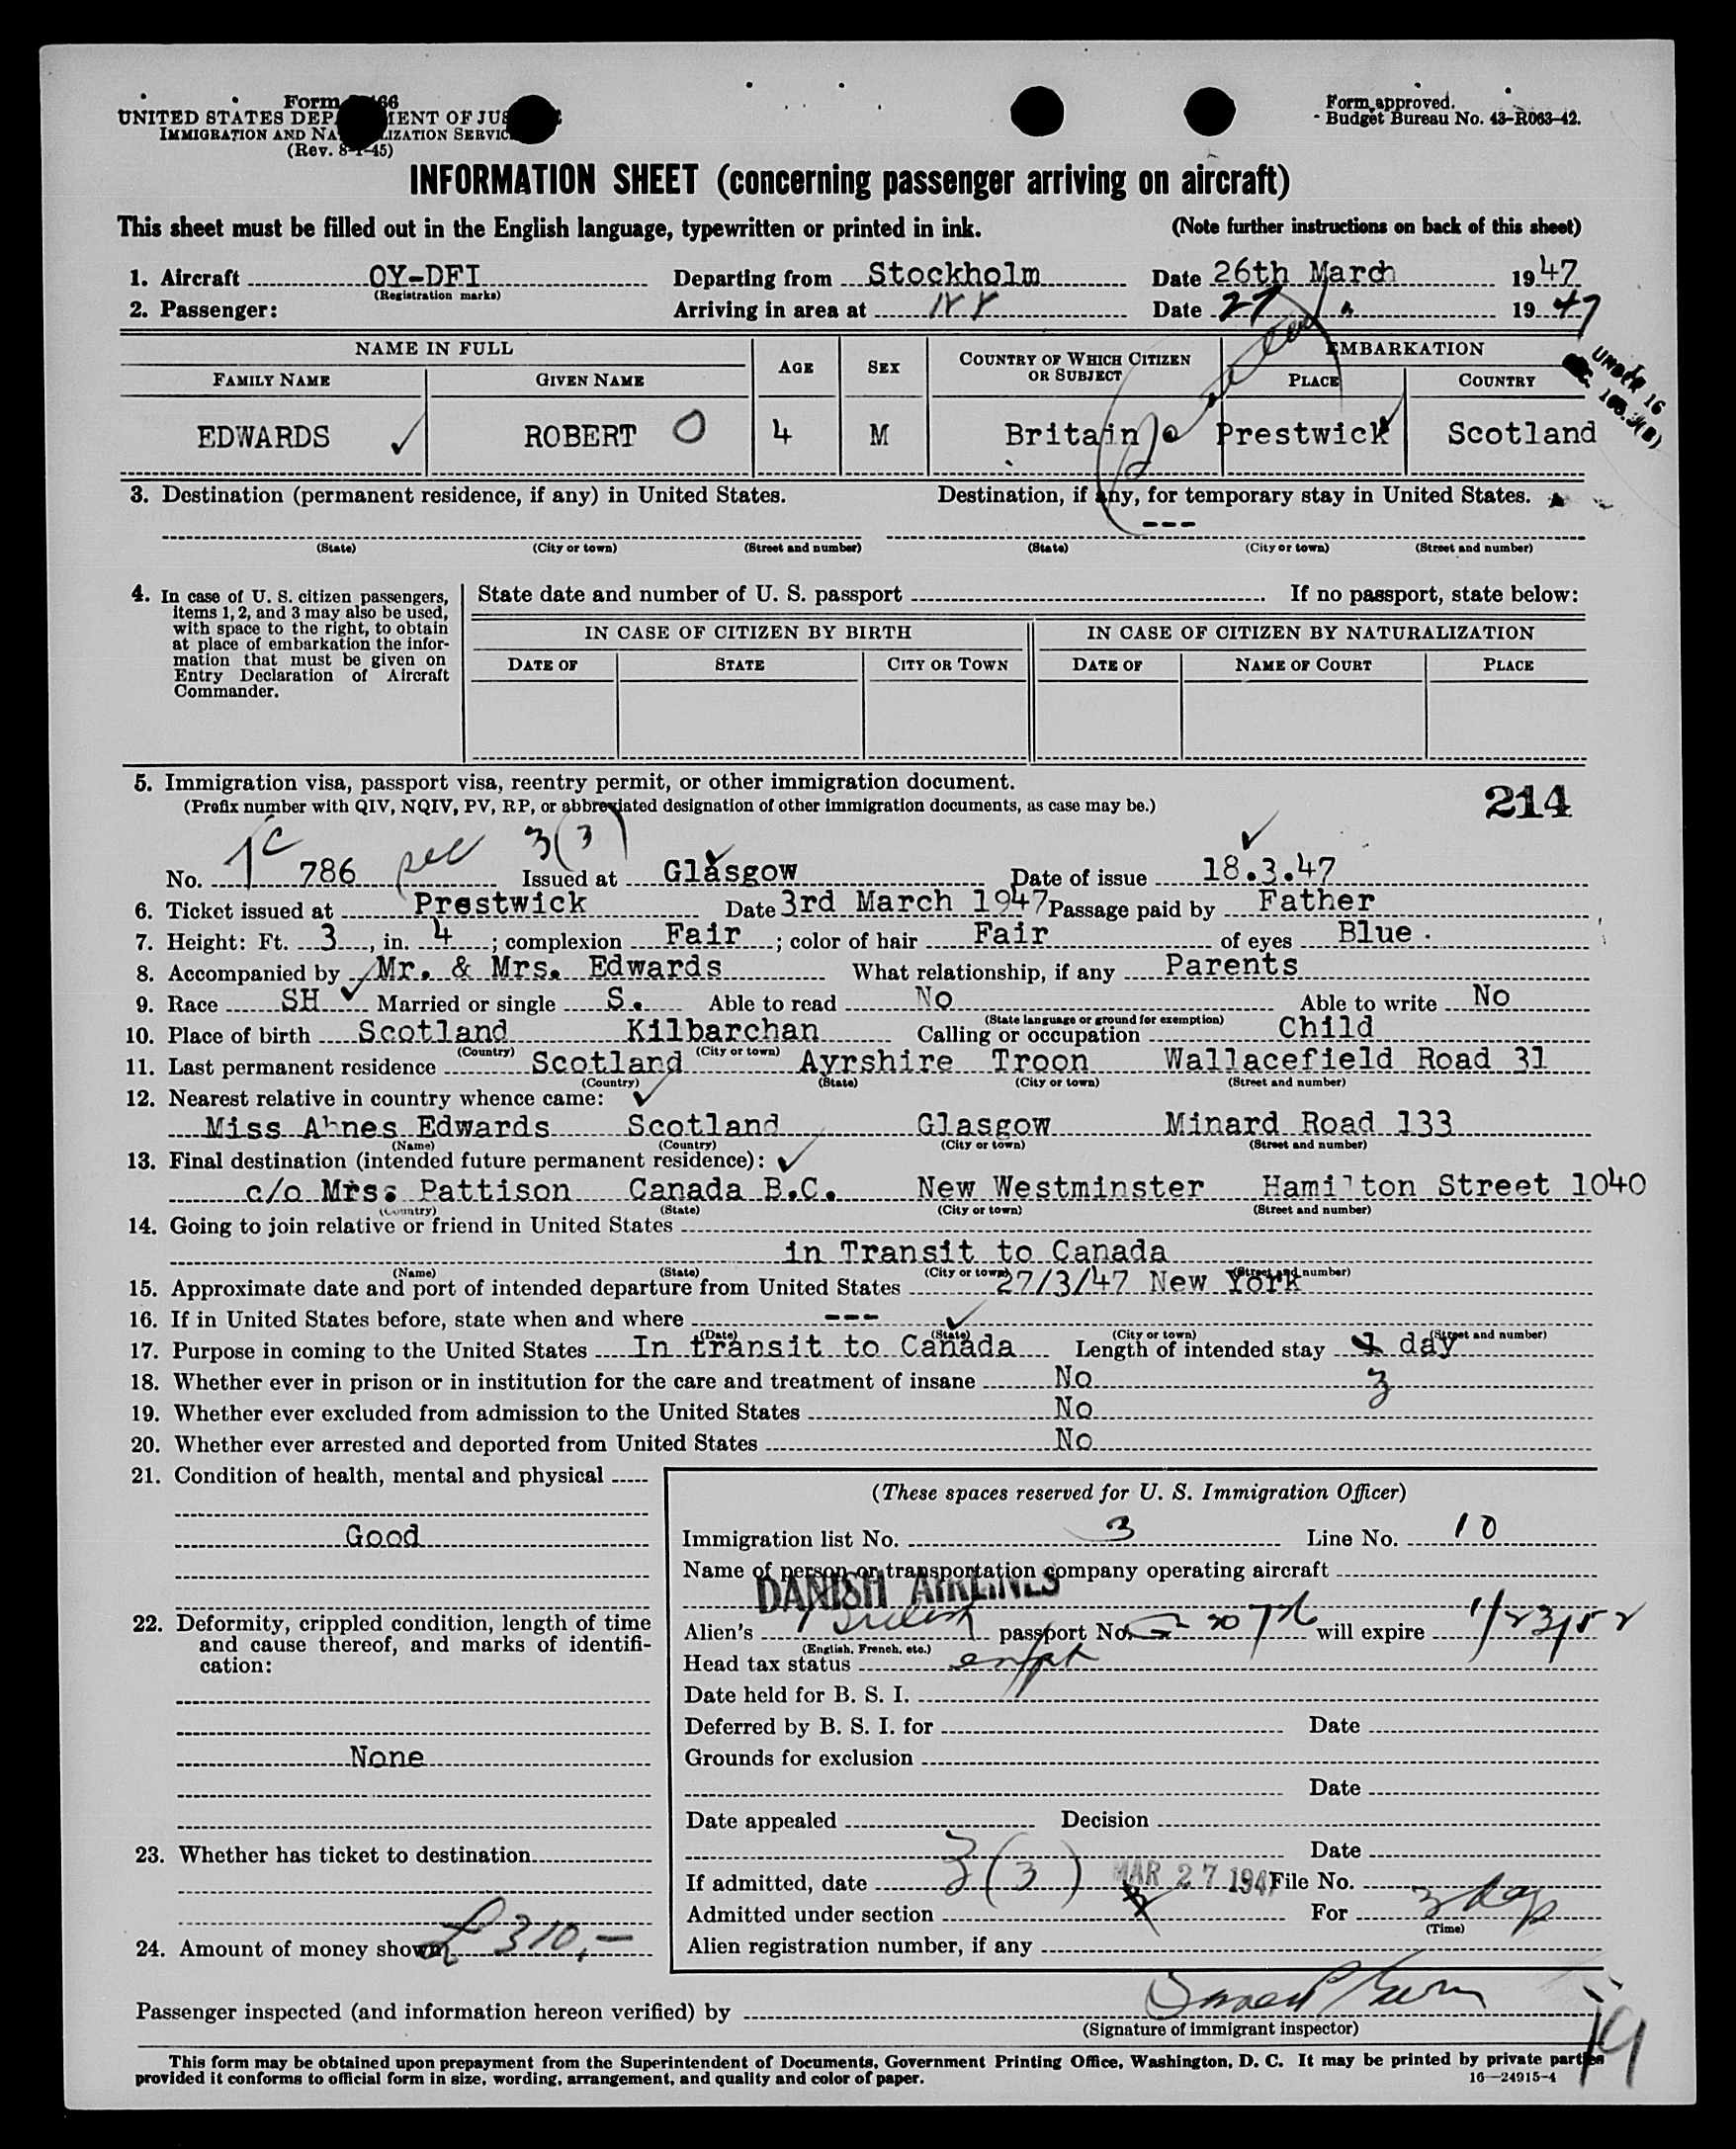 Form I-466
UNITED STATES DEPARTMENT OF JUSTICE
IMMIGRATION AND NATURALIZATION SERVICE
(Rev. 8-1-45)
Form approved.
Budget Bureau No. 43-R063-42.
INFORMATION SHEET (concerning passenger arriving on aircraft)
This sheet must be filled out in the English language, typewritten or printed in ink. (Note further instructions on back of this sheet)
1. Aircraft OY-DFI Departing from Stockholm Date 26th March 1947
(Registration marks)
2. Passenger: Arriving in area at NY Date 27 " 1947
NAME IN FULL AGE SEX COUNTRY OF WHICH CITIZEN OR SUBJECT EMBARKATION
FAMILY NAME GIVEN NAME PLACE COUNTRY
UNDER 16
EDWARDS ROBERT O 4 M Britain Prestwick Scotland
3. Destination (permanent residence, if any) in United States. Destination, if any, for temporary stay in United States.
---
(State) (City or town) (Street and number) (State) (City or town) (Street and number)
4. In case of U. S. citizen passengers, items 1, 2, and 3 may also be used, with space to the right, to obtain at place of embarkation the information that must be given on Entry Declaration of Aircraft Commander.
State date and number of U. S. passport If no passport, state below:
IN CASE OF CITIZEN BY BIRTH IN CASE OF CITIZEN BY NATURALIZATION
DATE OF STATE CITY OR TOWN DATE OF NAME OF COURT PLACE
5. Immigration visa, passport visa, reentry permit, or other immigration document.
(Prefix number with QIV, NQIV, PV, RP, or abbreviated designation of other immigration documents, as case may be.)
214
No. TC 786 sec 3(3) Issued at Glasgow Date of issue 18.3.47
6. Ticket issued at Prestwick Date 3rd March 1947 Passage paid by Father
7. Height: Ft. 3, in. 4; complexion Fair; color of hair Fair of eyes Blue.
8. Accompanied by Mr. & Mrs. Edwards What relationship, if any Parents
9. Race SH Married or single S. Able to read No Able to write No
(State language or ground for exemption)
10. Place of birth Scotland Kilbarchan Calling or occupation Child
(Country) (City or town)
11. Last permanent residence Scotland Ayrshire Troon Wallacefield Road 31
(Country) (State) (City or town) (Street and number)
12. Nearest relative in country whence came:
Miss Edwards Scotland Glasgow Minard Road 133
(Name) (Country) (City or town) (Street and number)
13. Final destination (intended future permanent residence):
c/o Mrs: Pattison Canada B.C. New Westminster Hamilton Street 1040
(Country) (State) (City or town) (Street and number)
14. Going to join relative or friend in United States
in Transit to Canada
(Name) (State) (City or town) (Street and number)
15. Approximate date and port of intended departure from United States 27/3/47 New York
16. If in United States before, state when and where ---
(Date) (State) (City or town) (Street and number)
17. Purpose in coming to the United States In transit to Canada Length of intended stay day
18. Whether ever in prison or in institution for the care and treatment of insane No 3
19. Whether ever excluded from admission to the United States No
20. Whether ever arrested and deported from United States No
21. Condition of health, mental and physical
Good
22. Deformity, crippled condition, length of time and cause thereof, and marks of identification:
None
23. Whether has ticket to destination
24. Amount of money shown £310,-
(These spaces reserved for U. S. Immigration Officer)
Immigration list No. 3 Line No. 10
Name of person or transportation company operating aircraft
DANISH AIRLINES
Alien's British passport No. will expire 1/23/52
(English, French, etc.)
Head tax status
Date held for B. S. I.
Deferred by B. S. I. for Date
Grounds for exclusion
Date
Date appealed Decision
Date
If admitted, date 3(3) MAR 27 1947 File No.
Admitted under section For 3 days
(Time)
Alien registration number, if any
Passenger inspected (and information hereon verified) by
(Signature of immigrant inspector)
19
This form may be obtained upon prepayment from the Superintendent of Documents, Government Printing Office, Washington, D. C. It may be printed by private parties
provided it conforms to official form in size, wording, arrangement, and quality and color of paper.
16—24915-4